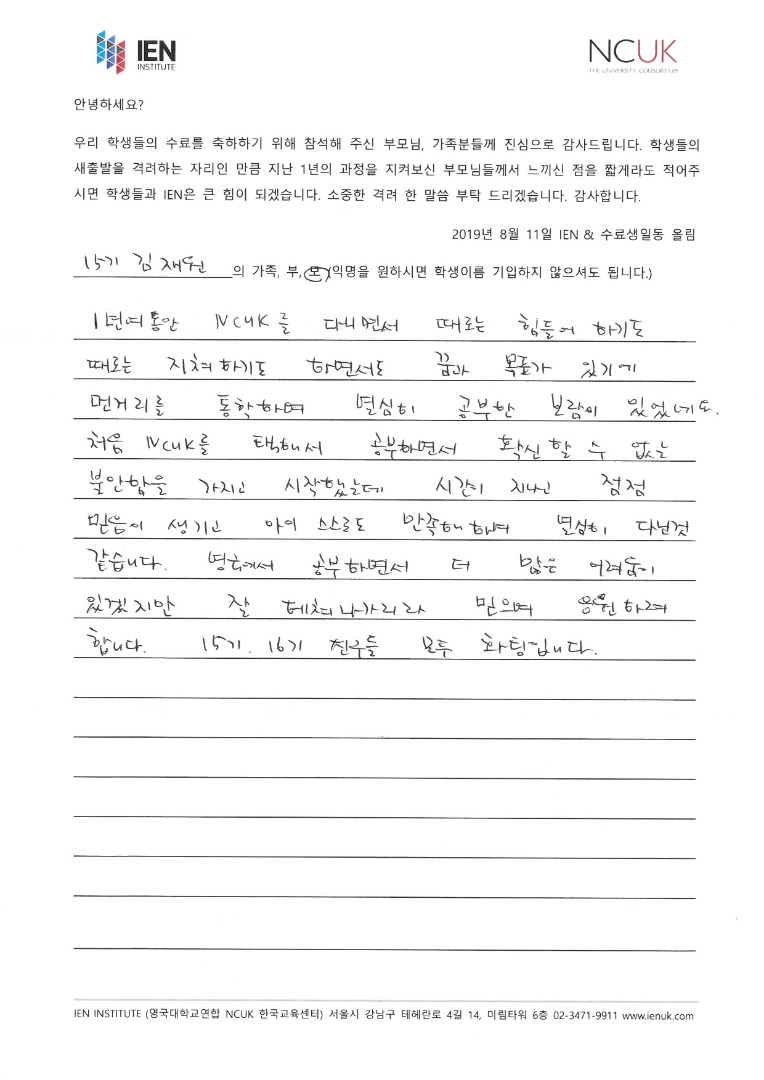 IEN
INSTITUTE
NCUK
THE UNIVERSITY CONSORTIUM
안녕하세요?
우리 학생들의 수료를 축하하기 위해 참석해 주신 부모님, 가족분들께 진심으로 감사드립니다. 학생들의
새출발을 격려하는 자리인 만큼 지난 1년의 과정을 지켜보신 부모님들께서 느끼신 점을 짧게라도 적어주
시면 학생들과 IEN은 큰 힘이 되겠습니다. 소중한 격려 한 말씀 부탁 드리겠습니다. 감사합니다.
2019년 8월 11일 IEN & 수료생일동 올림
15기 김재원 의 가족, 부, 모 (익명을 원하시면 학생이름을 기입하지 않으셔도 됩니다.)
1년여동안 NCUK를 다니면서 때로는 힘들어 하기도
때로는 지쳐하기도 하면서도 꿈과 목표가 있기에
먼거리를 통학하며 열심히 공부한 보람이 있었네요.
처음 NCUK를 택해서 공부하면서 확신 할 수 없는
불안함을 가지고 시작했는데 시간이 지나고 점점
믿음이 생기고 아이 스스로도 만족해 하며 열심히 다닌것
같습니다. 영국에서 공부하면서 더 많은 어려움이
있겠지만 잘 헤쳐나가리라 믿으며 응원하려
합니다. 15기. 16기 친구들 모두 화팅입니다.
IEN INSTITUTE (영국대학교연합 NCUK 한국교육센터) 서울시 강남구 테헤란로 4길 14, 미림타워 6층 02-3471-9911 www.ienuk.com